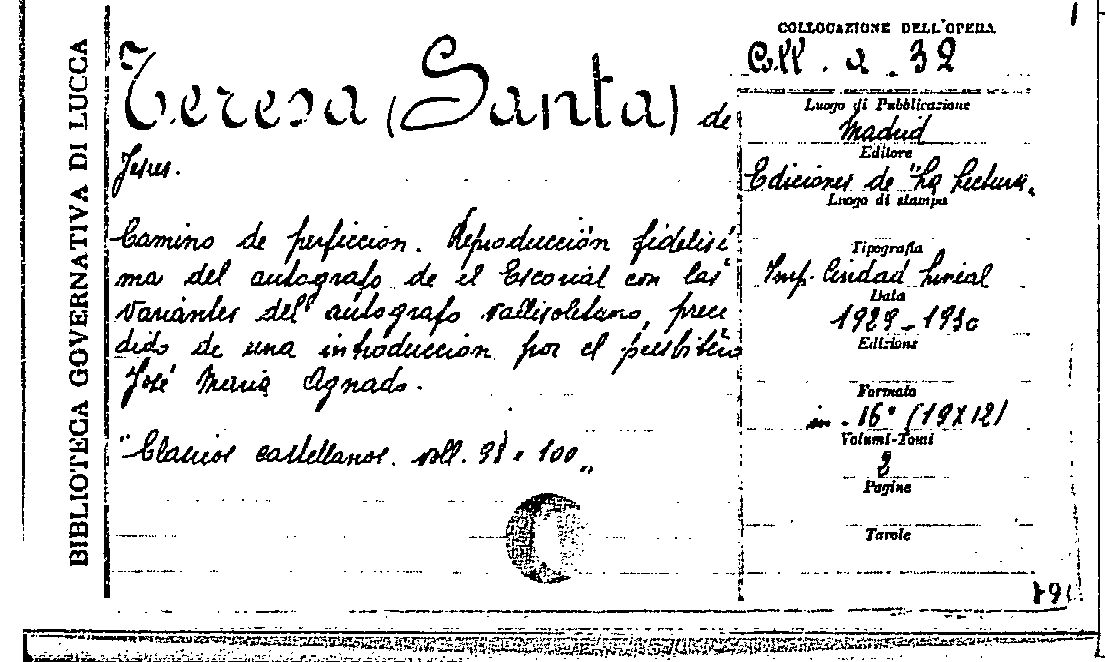 BIBLIOTECA GOVERNATIVA DI LUCCA
Teresa (Santa) de
Jesus.
Camino de perfeccion. Reproducción fidelisi
ma del autografo de el Escorial con las
variantes del autografo vallisoletano, prece
dido de una introduccion por el presbitero
José Maria Agnado.
"Clasicos castellanos. voll. 99 e 100"
COLLOCAZIONE DELL'OPERA
Coll. a. 32
Luogo di Pubblicazione
Madrid
Editore
Ediciones de "La Lectura"
Luogo di stampa
Tipografia
Imp. Ciudad Lineal
Data
1929-1930
Edizione
Formato
in-16° (19X12)
Volumi-Tomi
2
Pagine
Tavole